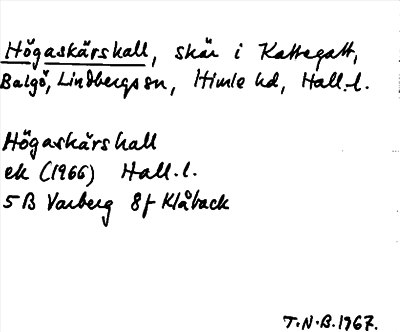 Högaskärshall, skär i Kattegatt,
Balgö, Lindbergs sn, Himle hd, Hall.l.
Högaskärshall
ek (1966) Hall.l.
5B Varberg 8f Klåback
T.N.B.1967.